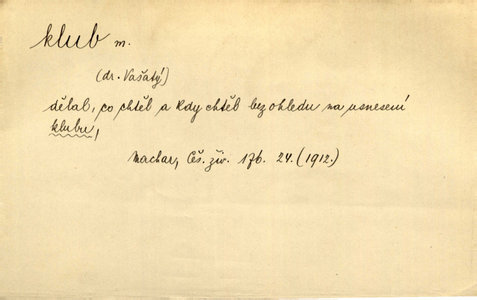 klub m.
(dr. Vašatý)
dělal, co chtěl a kdy chtěl bez ohledu na usnesení
klubu,
Machar, Čes. živ. 176. 24. (1912.)